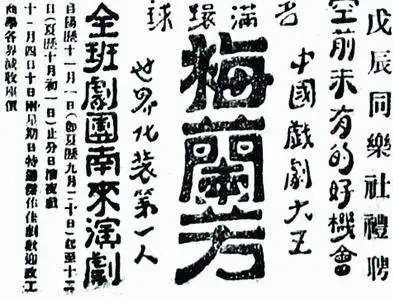 戊辰同樂社禮聘
空前未有的好機會
中國戲劇大王
名滿環球
梅蘭芳
世界化裝第一人
全班劇團南來演劇
自陽曆十一月一日(即夏曆九月二十日)起至十二
日(夏曆十月初一日)止分日演夜戲
十一月四日十日兩星期日特選傑作佳劇歡迎政工
商學各界減收座價